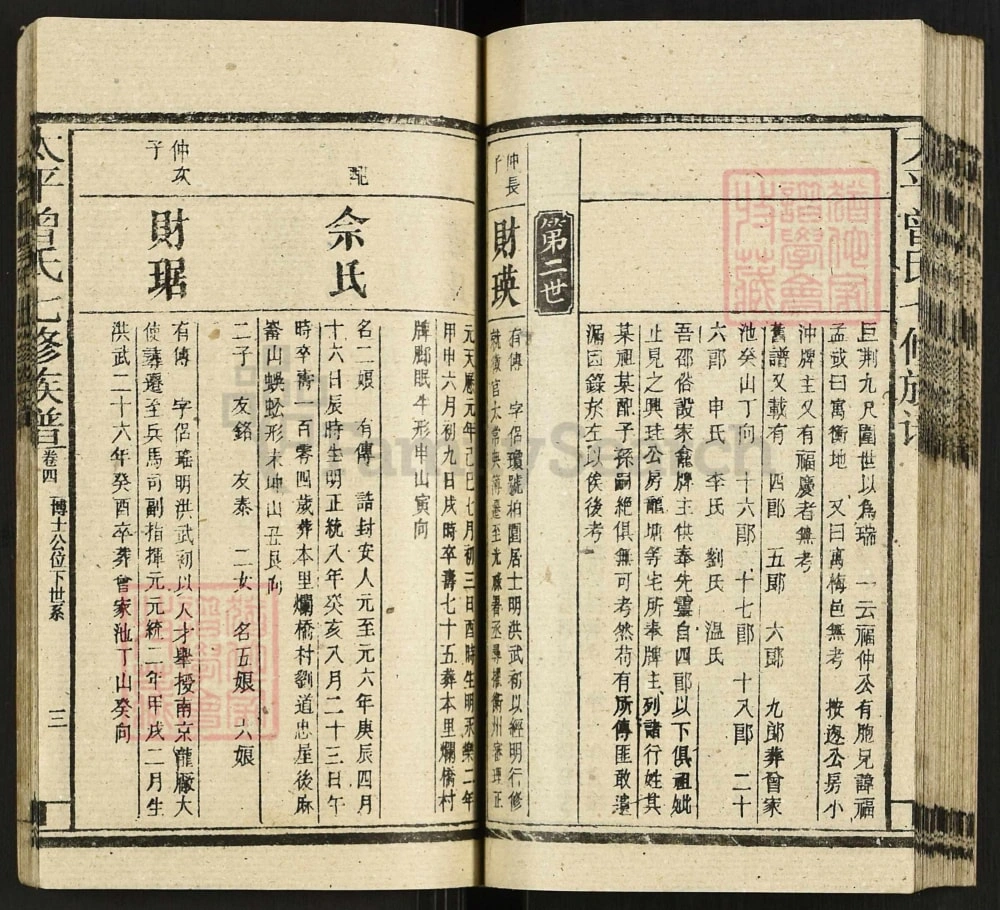 太平曾氏七修族譜
巨荆九尺圍世以爲瑞　一云福仲公有胞兄諱福
孟或曰寓衡地　又曰寓梅邑無考　按邀公房小
沖牌主又有福慶者無考
舊譜又載有　四郎　五郎　六郎　九郎葬曾家
池癸山丁向　十六郎　十七郎　十八郎　二十
六郎　申氏　李氏　劉氏　溫氏
吾邵俗設家龕牌主供奉先靈自四郎以下俱祖妣
止見之興珪公房龍塘等宅所奉牌主列諸行姓其
某祖某配子孫嗣絕俱無可考然苟有所傳匪敢遺
漏因錄於左以俟後考
第二世
仲長子
財瑛
有傳　字侶瓊號柏園居士明洪武初以經明行修
就徵官太常典簿遷至光祿署丞尋擢衡州審理正
元天曆元年己巳七月初三日酉時生明永樂二年
甲申六月初九日戌時卒壽七十五葬本里爛橋村
牌廊眠牛形申山寅向
配
佘氏
名二娘　有傳　誥封安人元至元六年庚辰四月
十六日辰時生明正統八年癸亥八月二十三日午
時卒壽一百零四歲葬本里爛橋村劉道忠屋後麻
崙山蜈蚣形未坤山丑艮向
二子　友銘　友泰　二女　名五娘　六娘
仲次子
財琚
有傳　字侶瑤明洪武初以人才舉授南京龍廠大
使轉遷至兵馬司副指揮元元統二年甲戌二月生
洪武二十六年癸酉卒葬曾家池丁山癸向
太平曾氏七修族譜
卷四
博士公位下世系
三
FamilySearch